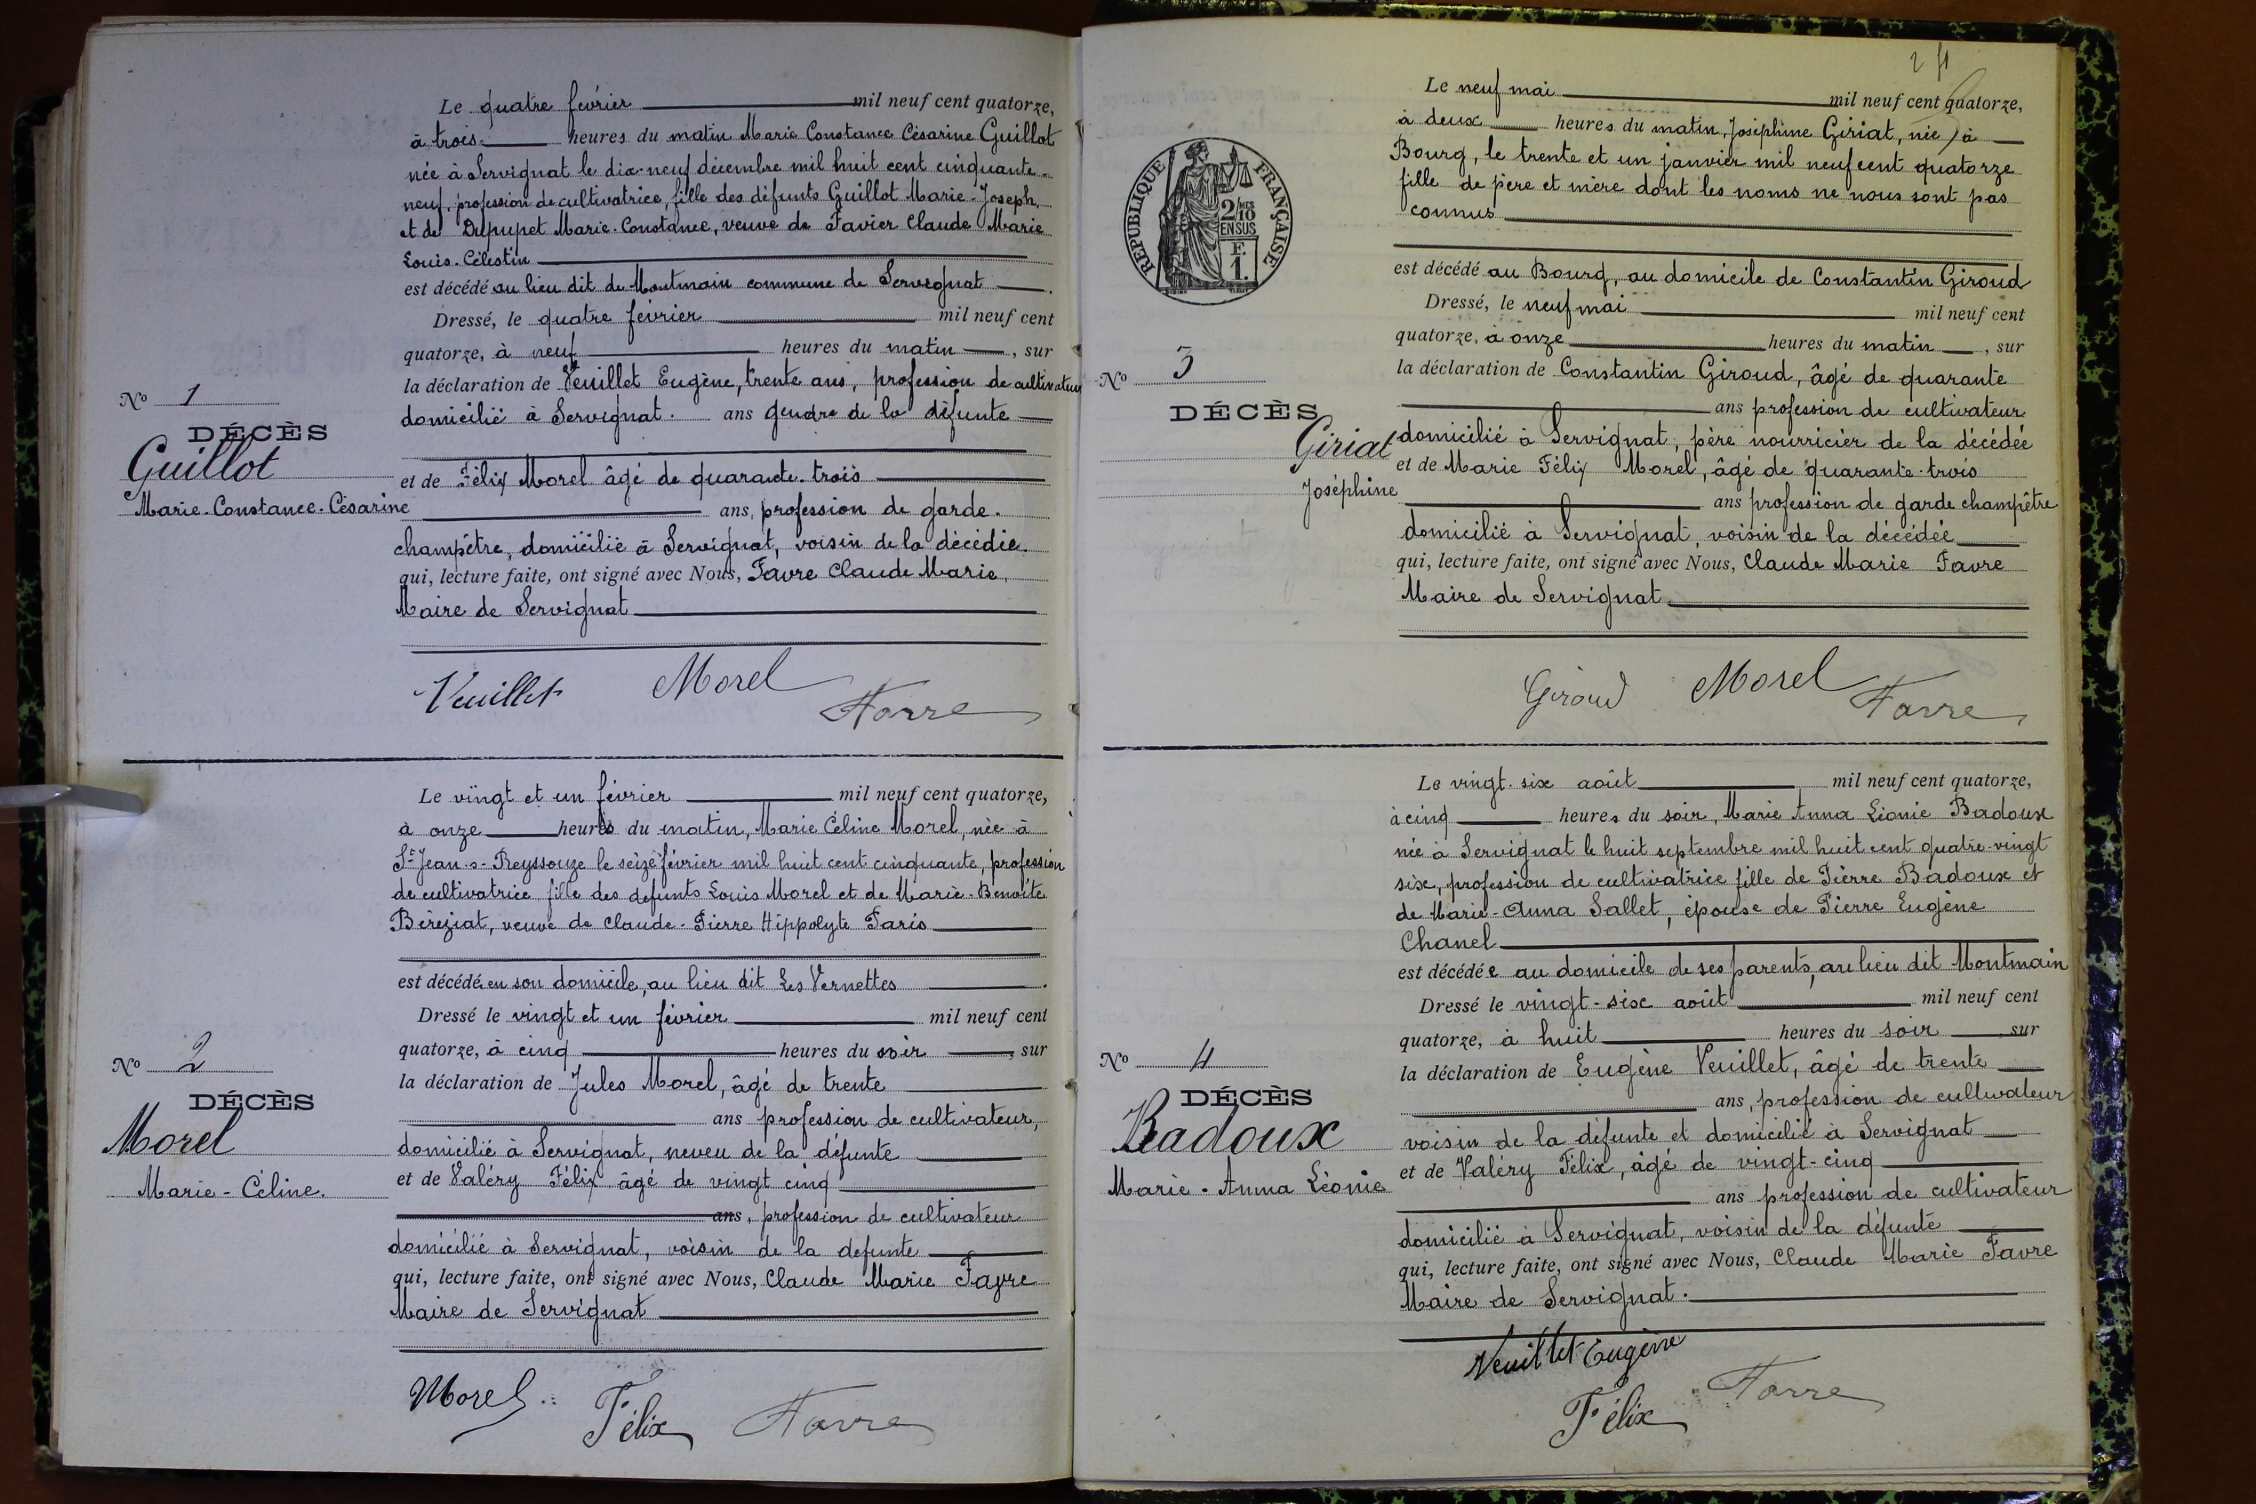 Le quatre février mil neuf cent quatorze,
à trois heures du matin Marie Constance Césarine Guillot
née à Servignat le dix-neuf décembre mil huit cent cinquante-
neuf, profession de cultivatrice, fille des défunts Guillot Marie-Joseph,
et de Dupupet Marie-Constance, veuve de Favier Claude Marie
Louis-Célestin
est décédé au lieu dit de Montmain commune de Servignat.
Dressé, le quatre février mil neuf cent
quatorze, à neuf heures du matin, sur
la déclaration de Veuillet Eugène, trente ans, profession de cultivateur
Nº 1
domicilié à Servignat. ans gendre de la défunte
DÉCÈS
Guillot
et de Félix Morel âgé de quarante-trois
Marie-Constance-Césarine
ans, profession de garde-
champêtre, domicilié à Servignat, voisin de la décédée.
qui, lecture faite, ont signé avec Nous, Favre Claude Marie,
Maire de Servignat
Veuillet Morel
Favre
Le vingt et un février mil neuf cent quatorze,
à onze heures du matin, Marie Céline Morel, née à
St Jean-s-Reyssouze le seize février mil huit cent cinquante, profession
de cultivatrice fille des defunts Louis Morel et de Marie-Benoîte
Béréziat, veuve de Claude-Pierre Hippolyte Paris
est décédé en son domicile, au lieu dit Les Vernettes.
Dressé le vingt et un février mil neuf cent
quatorze, à cinq heures du soir, sur
Nº 2
la déclaration de Jules Morel, âgé de trente
DÉCÈS
ans profession de cultivateur,
Morel
domicilié à Servignat, neveu de la défunte
et de Valéry Félix âgé de vingt cinq
Marie-Céline.
ans, profession de cultivateur
domicilié à Servignat, voisin de la defunte
qui, lecture faite, ont signé avec Nous, Claude Marie Favre
Maire de Servignat
Morel
Félix Favre
Le neuf mai mil neuf cent quatorze,
à deux heures du matin, Joséphine Giriat, née à
Bourg, le trente et un janvier mil neuf cent quatorze
fille de père et mère dont les noms ne nous sont pas
connus
RÉPUBLIQUE FRANÇAISE
2/10 MES
EN SUS
F.
1.
est décédé au Bourg, au domicile de Constantin Giroud
Dressé, le neuf mai mil neuf cent
quatorze, à onze heures du matin, sur
Nº 3
la déclaration de Constantin Giroud, âgé de quarante
DÉCÈS
ans profession de cultivateur
Giriat
domicilié à Servignat, père nourricier de la décédée
et de Marie Félix Morel, âgé de quarante-trois
Joséphine
ans profession de garde champêtre
domicilié à Servignat, voisin de la décédée
qui, lecture faite, ont signé avec Nous, Claude Marie Favre
Maire de Servignat
Giroud Morel
Favre
Le vingt-six août mil neuf cent quatorze,
à cinq heures du soir, Marie Anna Léonie Badoux
née à Servignat le huit septembre mil huit cent quatre-vingt
six, profession de cultivatrice fille de Pierre Badoux et
de Marie-Anna Sallet, épouse de Pierre Eugène
Chanel
est décédée au domicile de ses parents, au lieu dit Montmain
Dressé le vingt-six août mil neuf cent
quatorze, à huit heures du soir sur
Nº 4
la déclaration de Eugène Veuillet, âgé de trente
DÉCÈS
ans, profession de cultivateur
Badoux
voisin de la défunte et domicilié à Servignat
et de Valéry Félix, âgé de vingt-cinq
Marie-Anna Léonie
ans profession de cultivateur
domicilié à Servignat, voisin de la défunte
qui, lecture faite, ont signé avec Nous, Claude Marie Favre
Maire de Servignat.
Veuillet Eugène
Favre
Félix